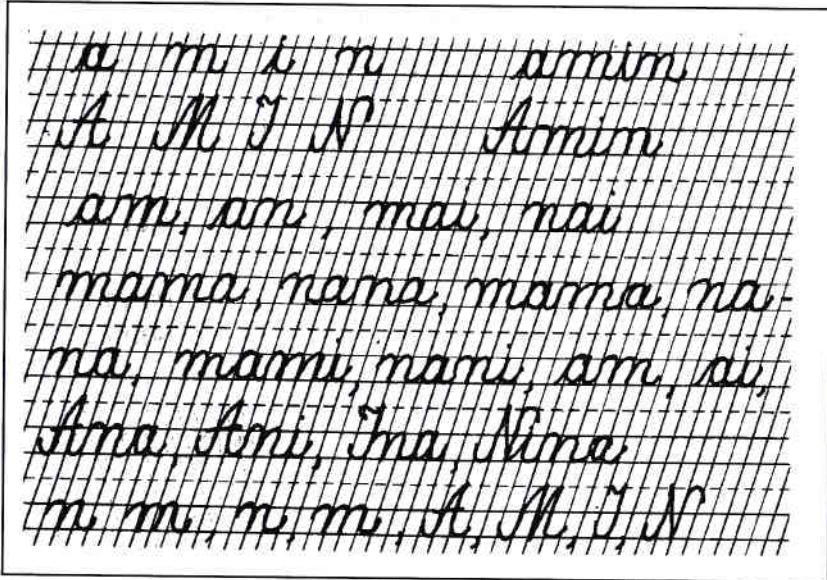 a m i n amin
A M I N Amin
am, an, mai, nai
mama, nana, mama, na-
na, mami, nani, am, ai,
Ana, Ani, Ina, Nina,
n m, n, m, A, M, I, N